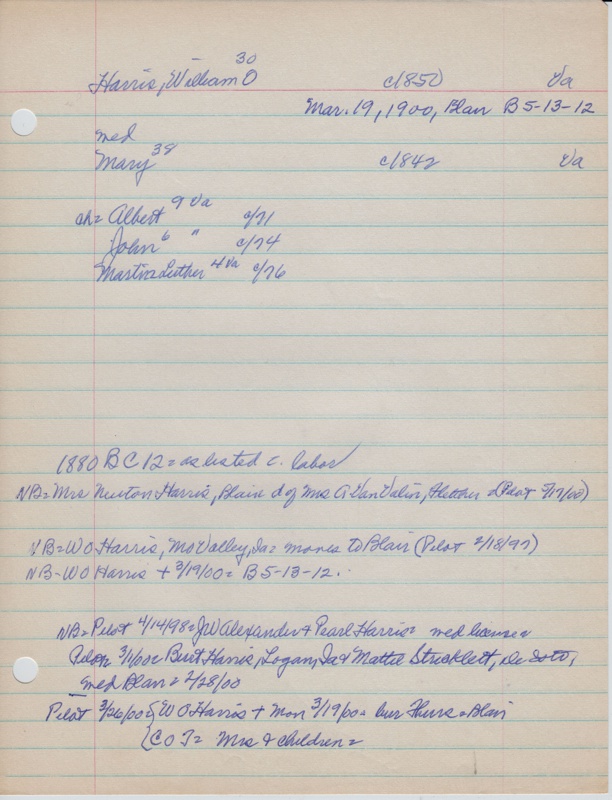 Harris, William O 30 c1850 Va
Mar. 19, 1900, Blair B 5-13-12
med
Mary 38 c1842 Va
ch= Albert 9 Va c/71
John 6 " c/74
Martin Luther 4 Va c/76
1880 BC 12= as listed c. labor
NB= Mrs Newton Harris, Blair d of Mrs A Van Valin, Fletcher (Pilot 5/17/00)
NB= W O Harris, Mo Valley, Ia= moves to Blair (Pilot 2/18/97)
NB- W O Harris + 3/19/00= B 5-13-12.
NB= Pilot 4/14/98= J W Alexander & Pearl Harris= med license=
Pilot 3/1/00= Burt Harris, Logan, Ia & Mattie Stricklett, De Soto,
med Blair= 2/28/00
Pilot 3/26/00= { W O Harris + Mon 3/19/00= bur Thurs= Blair
{ C O T= Mrs & children=